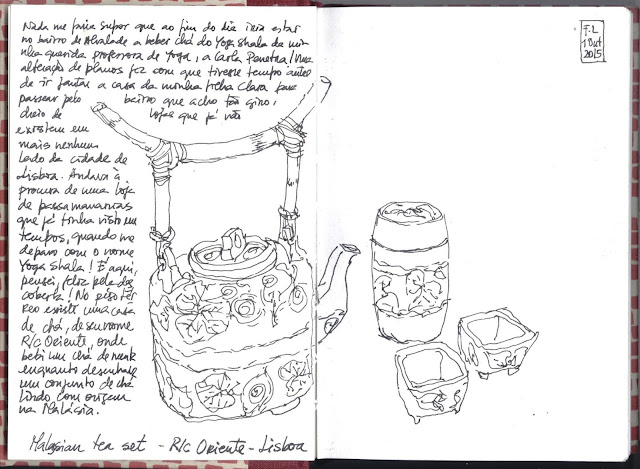 Nada me faria supor que ao fim do dia iria estar
no bairro de Alvalade a beber chá do Yoga Shala da mi
nha querida professora de Yoga, a Carla Panetra! Uma
alteração de planos fez com que tivesse tempo antes
de ir jantar a casa da minha filha Clara para
passear pelo bairro que acho tão giro,
cheio de lojas que já não
existem em
mais nenhum
lado da cidade de
Lisboa. Andava à
procura de uma loja
de passamanarias
que já tinha visto em
tempos, quando me
deparo com o nome
Yoga Shala! É aqui,
pensei, feliz pela des
coberta! No piso tér
reo existe uma casa
de chá, de seu nome
R/C Oriente, onde
bebi um chá de
enquanto desenhava
um conjunto de chá
lindo com origem
na Malásia.
Malasian tea set - R/C Oriente - Lisboa
F.L
1 Out
2015